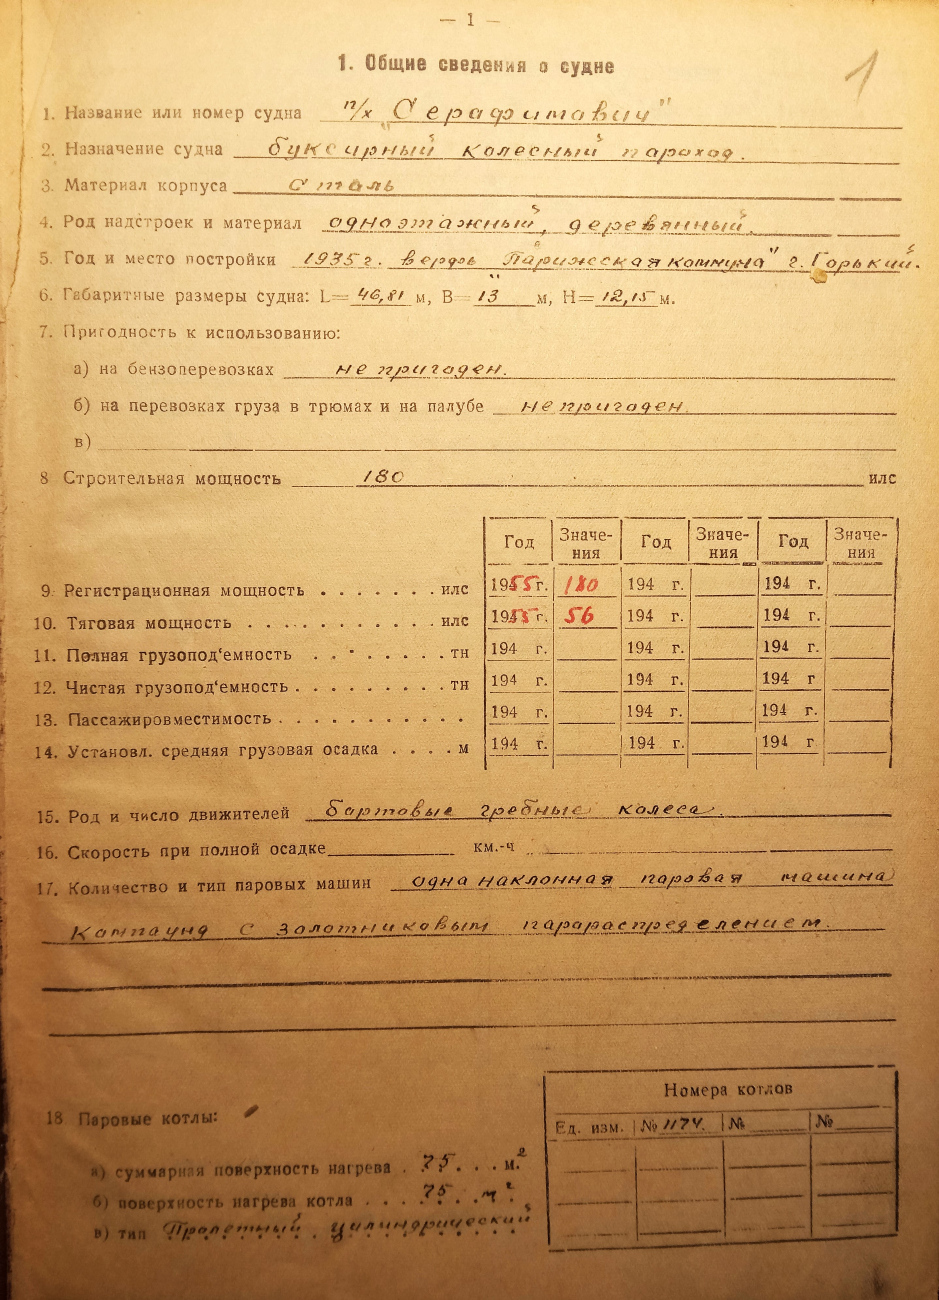 — 1 —
1
1. Общие сведения о судне
1. Название или номер судна п/х „Серафимович"
2. Назначение судна буксирный колесный пароход.
3. Материал корпуса Сталь
4. Род надстроек и материал одноэтажный, деревянный.
5. Год и место постройки 1935 г. верфь „Парижская коммуна" г. Горький.
6. Габаритные размеры судна: L= 46,81 м, B= 13 м, H= 12,15 м.
7. Пригодность к использованию:
а) на бензоперевозках не пригоден.
б) на перевозках груза в трюмах и на палубе не пригоден.
в)
8 Строительная мощность 180 илс
Год Значения Год Значения Год Значения
9. Регистрационная мощность . . . . . . . илс 1955 г. 180 194 г. 194 г.
10. Тяговая мощность . . . . . . . . . . . . илс 1955 г. 56 194 г. 194 г.
11. Полная грузопод‘емность . . . . . . . . тн 194 г. 194 г. 194 г.
12. Чистая грузопод‘емность . . . . . . . . . тн 194 г. 194 г. 194 г
13. Пассажировместимость . . . . . . . . . . . 194 г. 194 г. 194 г.
14. Установл. средняя грузовая осадка . . . . м 194 г. 194 г. 194 г
15. Род и число движителей бортовые гребные колеса.
16. Скорость при полной осадке км.-ч
17. Количество и тип паровых машин одна наклонная паровая машина
Компаунд с золотниковым парораспределением.
Номера котлов
18 Паровые котлы:
Ед. изм. № 1174. № №
а) суммарная поверхность нагрева . 75 . . . м.²
б) поверхность нагрева котла . . . . 75 . . м² .
в) тип Пролетный, цилиндрический